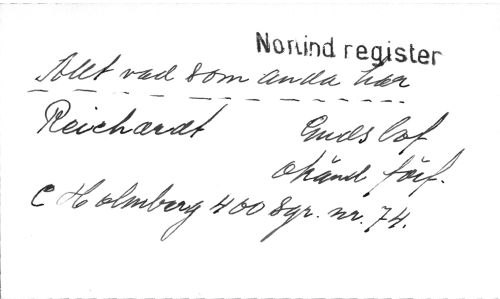 Norrind register
Allt vad som anda har
Reichardt Guds lof
okänd förf.
C Holmberg 400 Sgr. nr. 74.